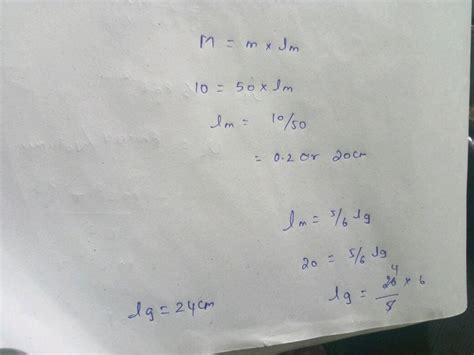 M = m × lm
10 = 50 × lm
lm = 10/50
= 0.2 or 20cm
lm = 5/6 lg
20 = 5/6 lg
lg = 20 4 × 6 / 5
lg = 24cm